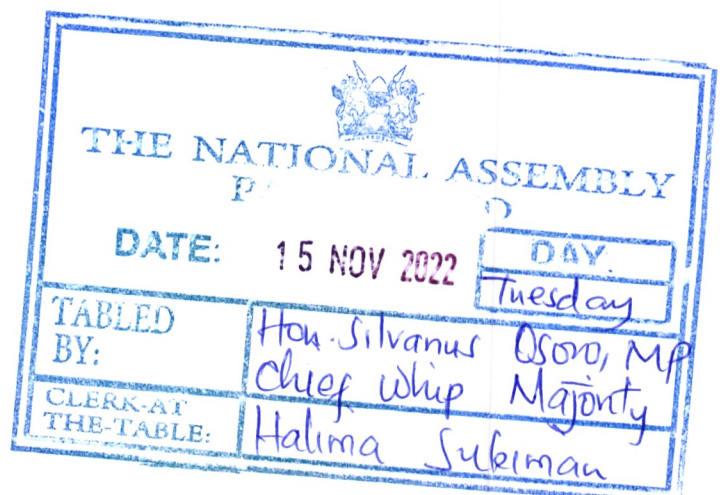 THE NATIONAL ASSEMBLY
DATE: 15 NOV 2022 DAY.
Tuesday
TABLED BY: Hon. Silvanus Osoro, MP
Chief Whip Majority
CLERK-AT THE-TABLE: Halima Suleiman